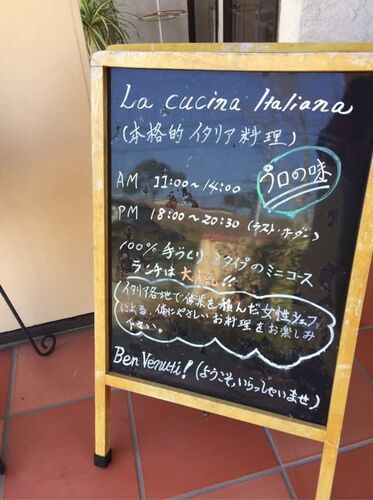 La cucina Italiana
(本格的イタリア料理)
プロの味
AM 11:00~14:00
PM 18:00~20:30 (ラスト・オーダー)
100% 手づくり 2タイプのミニコース
ランチは大人気!!
イタリア各地で修業を積んだ女性シェフ
による、体にやさしいお料理をお楽しみ
下さい。
Ben Venuti! (ようこそ、いらっしゃいませ)